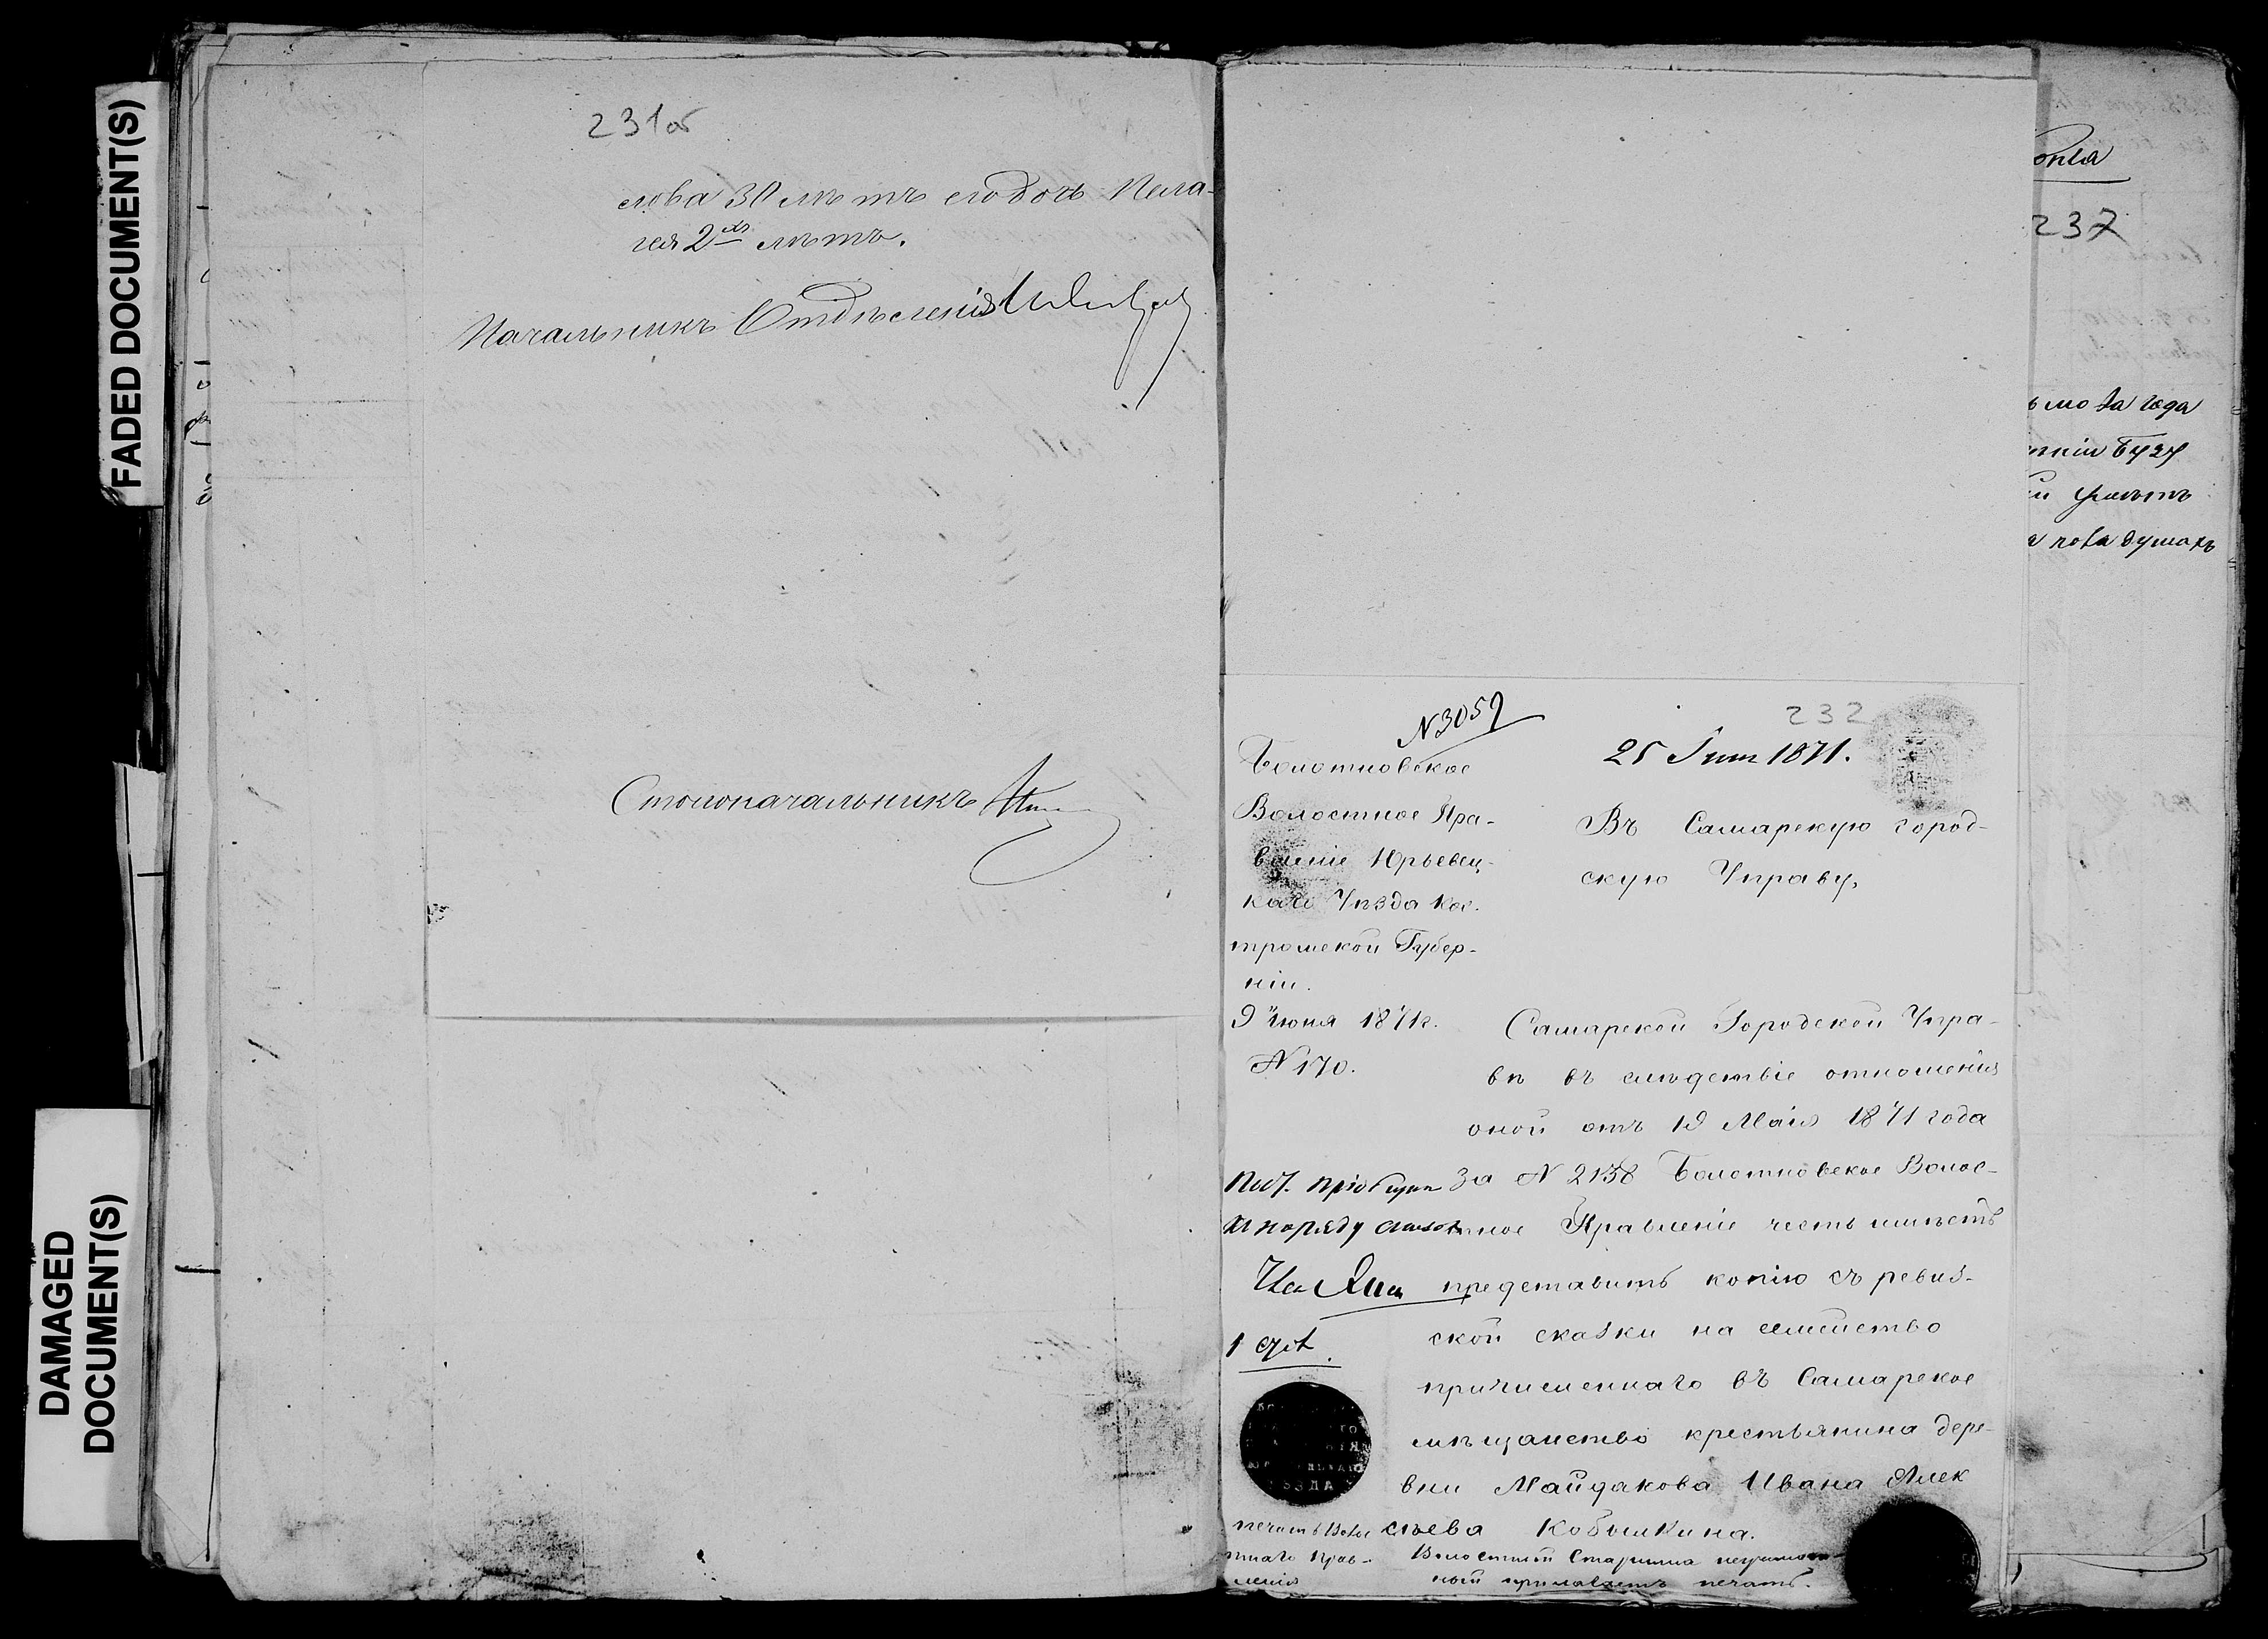 FADED DOCUMENT(S)
DAMAGED
DOCUMENT(S)
231об
лова 30 лѣтъ его дочь Пела-
гея 2хъ лѣтъ.
Начальникъ Отдѣленія
Столоначальникъ
237
года
Бузу
душахъ
N 3059
232
25 Іюн 1871.
Болотновское
Волостное Пра-
вленіе Юрьевец-
каго Уѣзда Кос-
тромской Губер-
ніи.
9 Июня 1871 г.
N 170.
Въ Самарскую город-
скую Управу,
Самарской Городской Упра-
вѣ въ слѣдствіе отношенія
оной отъ 19 Маія 1871 года
за N 2138 Болотновское Волос-
тное Правленіе честь имѣетъ
представить копію съ ревиз-
ской сказки на семейство
причисленнаго въ Самарское
мѣщанство крестьянина дере-
вни Майдакова Ивана Алек
сѣева Кобылкина.
Волостной Старшина неграмот-
ный прилагаетъ печать.
къ наряду
1
печать Волос
тнаго Прав-
ленія